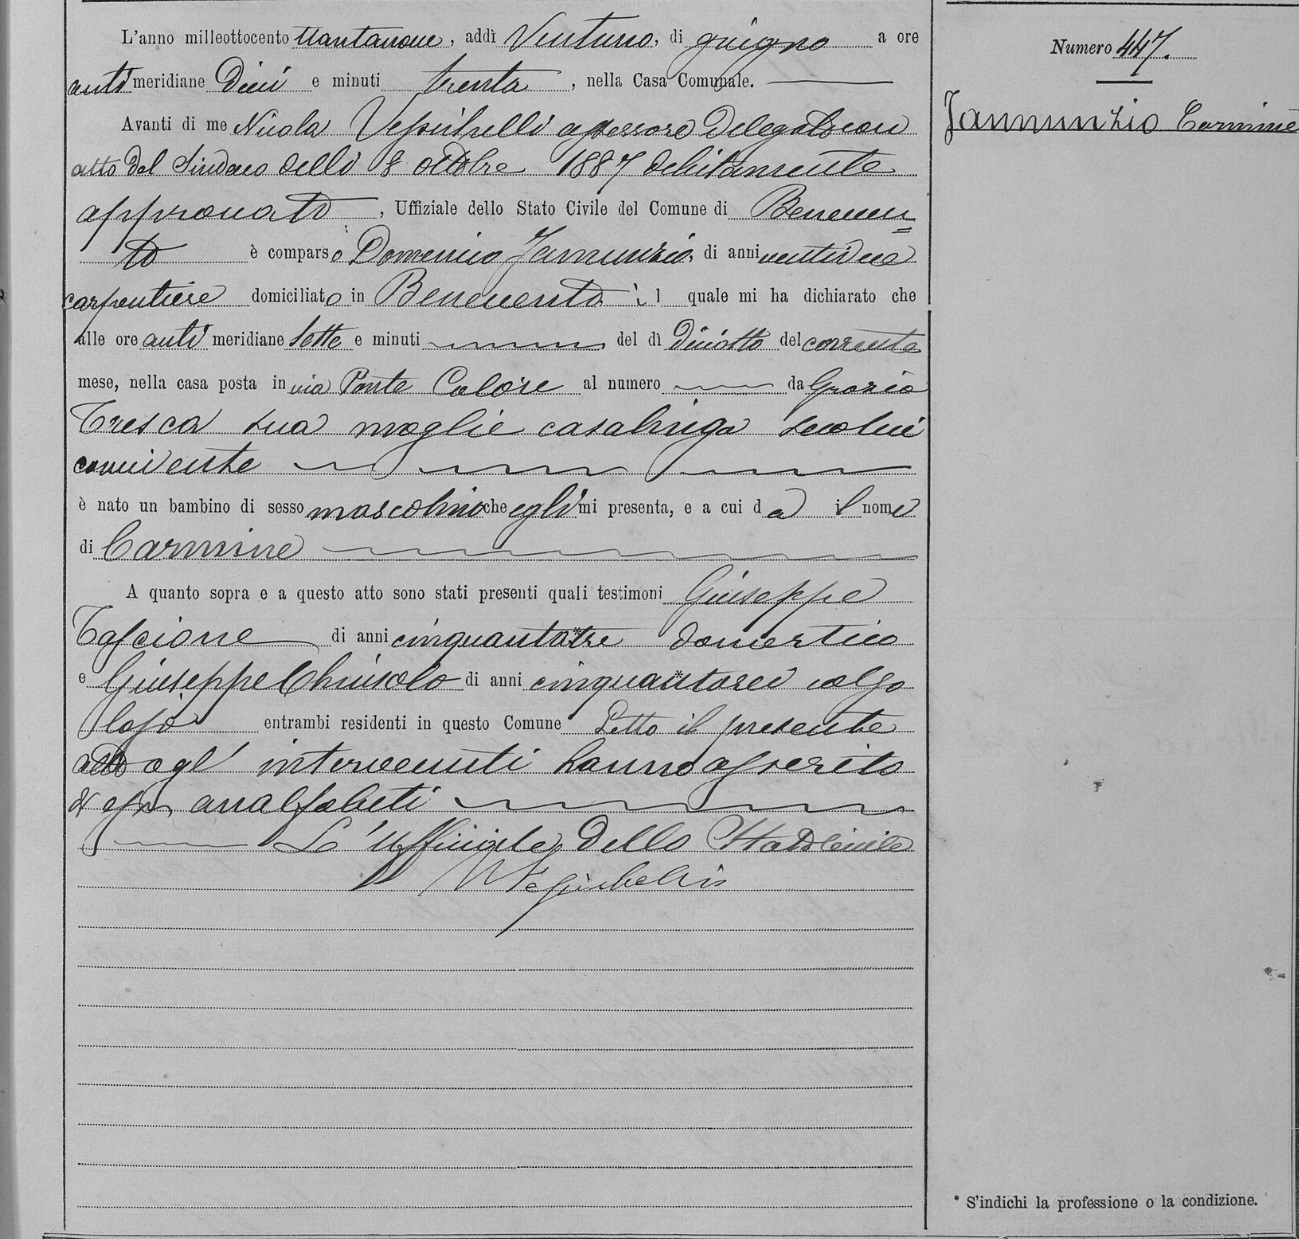 L'anno milleottocento ttantanove, addì Ventuno, di giugno a ore
anti meridiane Dieci e minuti trenta, nella Casa Comunale.
Avanti di me Nicola Vessichelli assessore Delegato con
atto del Sindaco delli 8 ottobre 1887 debitamente
approvato, Uffiziale dello Stato Civile del Comune di Beneven
to è comparso Domenico Jannunzio, di anni ventidue
carpentiere domiciliato in Benevento il quale mi ha dichiarato che
alle ore anti meridiane sette e minuti del dì diciotto del corrente
mese, nella casa posta in via Ponte Calore al numero da Grazia
Tresca sua moglie casalinga seco lui
convivente
è nato un bambino di sesso mascolino che egli mi presenta, e a cui da il nome
di Carmine
A quanto sopra e a questo atto sono stati presenti quali testimoni Giuseppe
Tascione di anni cinquantatre domestico
e Giuseppe Chiusolo di anni cinquantasei calzo
lajo entrambi residenti in questo Comune Letto il presente
atto agl' intervenuti hanno asserito
analfabeti
L'uffiziale dello Stato Civile
Numero 447.
Jannunzio Carmine
* S'indichi la professione o la condizione.